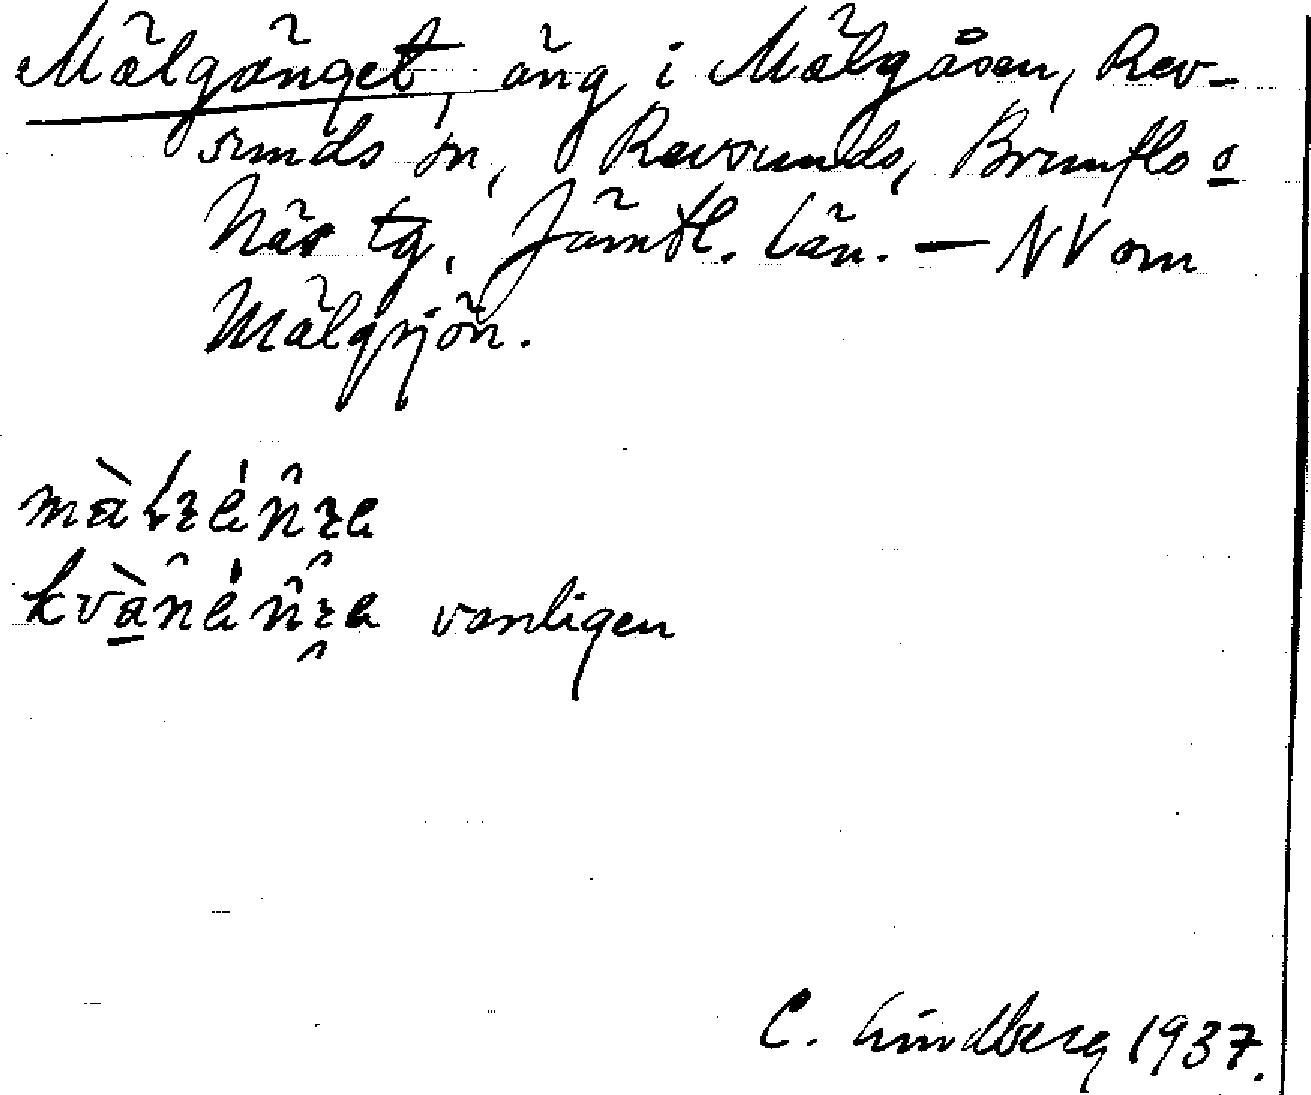 Mälgänget, äng i Mälgåsen, Rev-
sunds sn, Revsunds, Brunflo o
Näs tg, Jämtl. län. — NV om
Mälgsjön.
vanligen
C. Lindberg 1937.